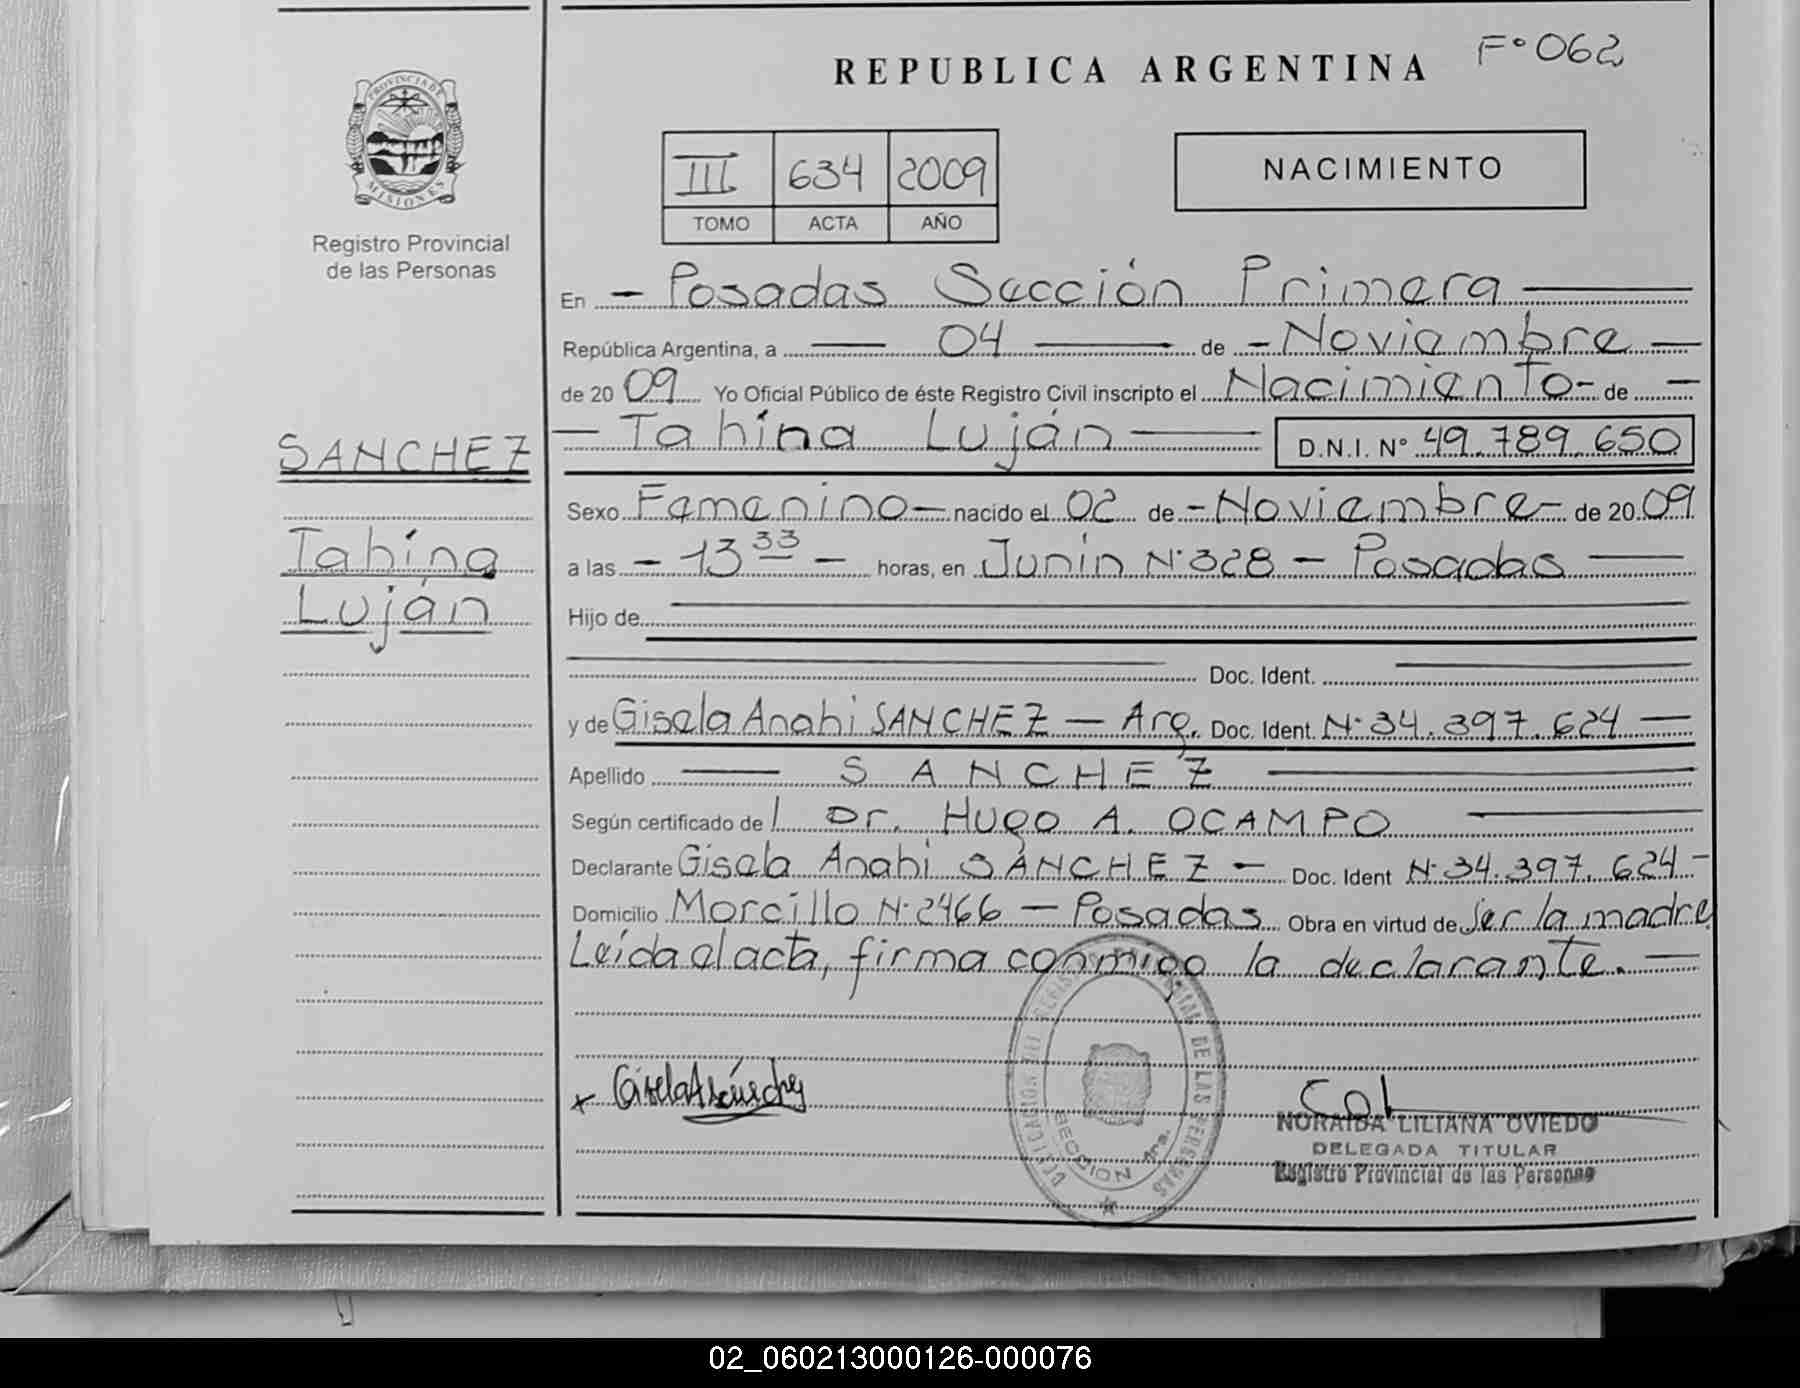 F° 062
REPUBLICA ARGENTINA
PROVINCIA DE
MISIONES
Registro Provincial
de las Personas
III 634 2009
TOMO ACTA AÑO
NACIMIENTO
En - Posadas Sección Primera
República Argentina, a 04 de - Noviembre -
de 20 09 Yo Oficial Público de éste Registro Civil inscripto el Nacimiento - de -
- Tahína Luján D.N.I. N° 49.789.650
SANCHEZ
Tahína
Luján
Sexo Femenino - nacido el 02 de - Noviembre - de 20 09
a las - 13 33 - horas, en Junín N° 328 - Posadas
Hijo de
Doc. Ident.
y de Gisela Anahi SANCHEZ - Arg. Doc. Ident. N° 34.397.624
Apellido SANCHEZ
Según certificado de l Dr. Hugo A. OCAMPO
Declarante Gisela Anahi SÁNCHEZ - Doc. Ident N° 34.397.624 -
Domicilio Morcillo N° 2466 - Posadas Obra en virtud de ser la madre
Leída el acta, firma conmigo la declarante.
DE LAS PERSONAS
SECCION 1ra.
NORAIDA LILIANA OVIEDO
DELEGADA TITULAR
Registro Provincial de las Personas
02_060213000126-000076